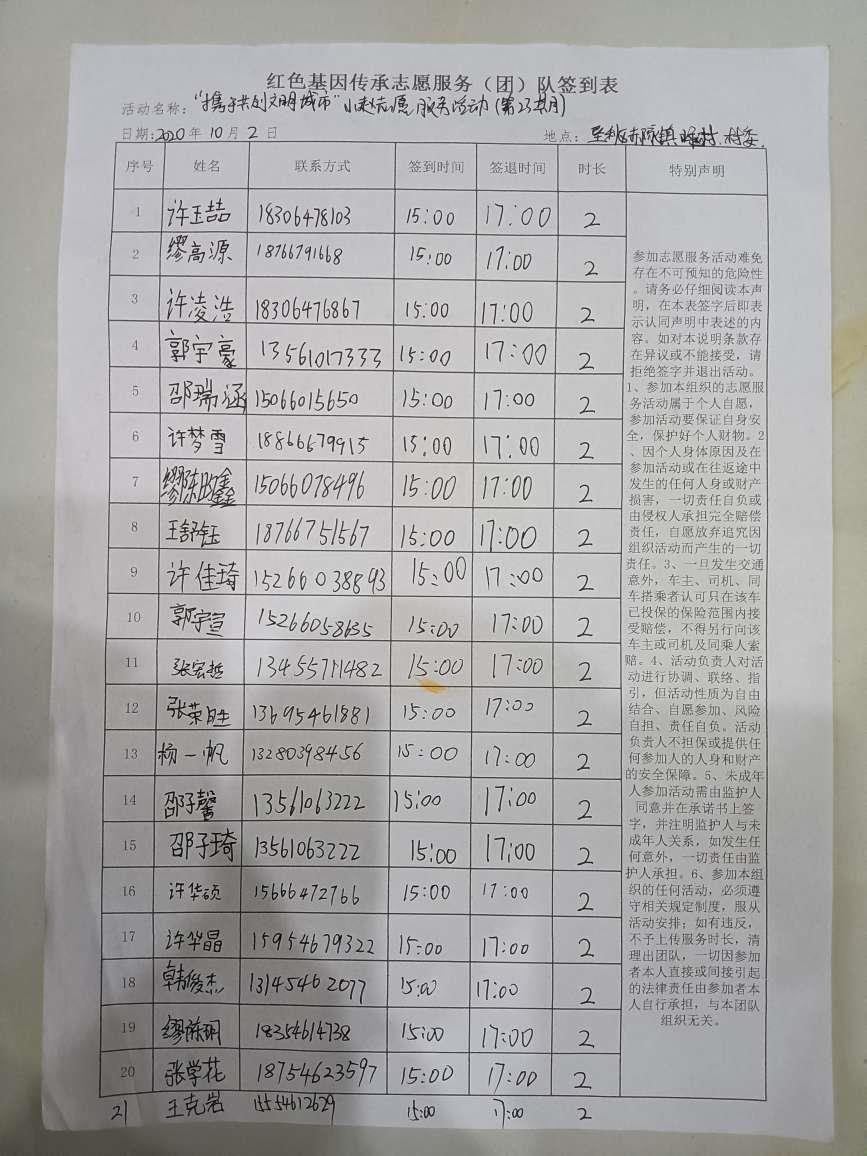 红色基因传承志愿服务（团）队签到表
活动名称："携手共创文明城市"小赵志愿服务活动(第23期)
日期:2020年10月2日 地点：垦利区郝家镇 村.村委.
序号 姓名 联系方式 签到时间 签退时间 时长 特别声明
1 许玉喆 18306478103 15:00 17:00 2
2 缪高源 18766791668 15:00 17:00 2
3 许凌浩 18306476867 15:00 17:00 2
4 郭宇豪 13561017333 15:00 17:00 2
5 邵瑞涵 15066015650 15:00 17:00 2
6 许梦雪 18866679915 15:00 17:00 2
7 缪陈昀鑫 15066078496 15:00 17:00 2
8 王舒钰 18766751567 15:00 17:00 2
9 许佳琦 15266038893 15:00 17:00 2
10 郭宇宣 15266058635 15:00 17:00 2
11 张宏哲 13455711482 15:00 17:00 2
12 张荣胜 13695461881 15:00 17:00 2
13 杨一帆 13280398456 15:00 17:00 2
14 邵子馨 13561063222 15:00 17:00 2
15 邵子琦 13561063222 15:00 17:00 2
16 许华硕 15666472766 15:00 17:00 2
17 许华晶 15954679322 15:00 17:00 2
18 韩俊杰 13145462077 15:00 17:00 2
19 缪陈玥 18354614738 15:00 17:00 2
20 张学花 18754623597 15:00 17:00 2
21 王克岩 15554612629 15:00 17:00 2
参加志愿服务活动难免
存在不可预知的危险性
。请务必仔细阅读本声
明，在本表签字后即表
示认同声明中表述的内
容。如对本说明条款存
在异议或不能接受，请
拒绝签字并退出活动。
1、参加本组织的志愿服
务活动属于个人自愿，
参加活动要保证自身安
全，保护好个人财物。2
、因个人身体原因及在
参加活动或在往返途中
发生的任何人身或财产
损害，一切责任自负或
由侵权人承担完全赔偿
责任，自愿放弃追究因
组织活动而产生的一切
责任。3、一旦发生交通
意外，车主、司机、同
车搭乘者认可只在该车
已投保的保险范围内接
受赔偿，不得另行向该
车主或司机及同乘人索
赔。4、活动负责人对活
动进行协调、联络、指
引，但活动性质为自由
结合、自愿参加、风险
自担、责任自负。活动
负责人不担保或提供任
何参加人的人身和财产
的安全保障。5、未成年
人参加活动需由监护人
同意并在承诺书上签
字，并注明监护人与未
成年人关系，如发生任
何意外，一切责任由监
护人承担。6、参加本组
织的任何活动，必须遵
守相关规定制度，服从
活动安排；如有违反，
不予上传服务时长，清
理出团队，一切因参加
者本人直接或间接引起
的法律责任由参加者本
人自行承担，与本团队
组织无关。